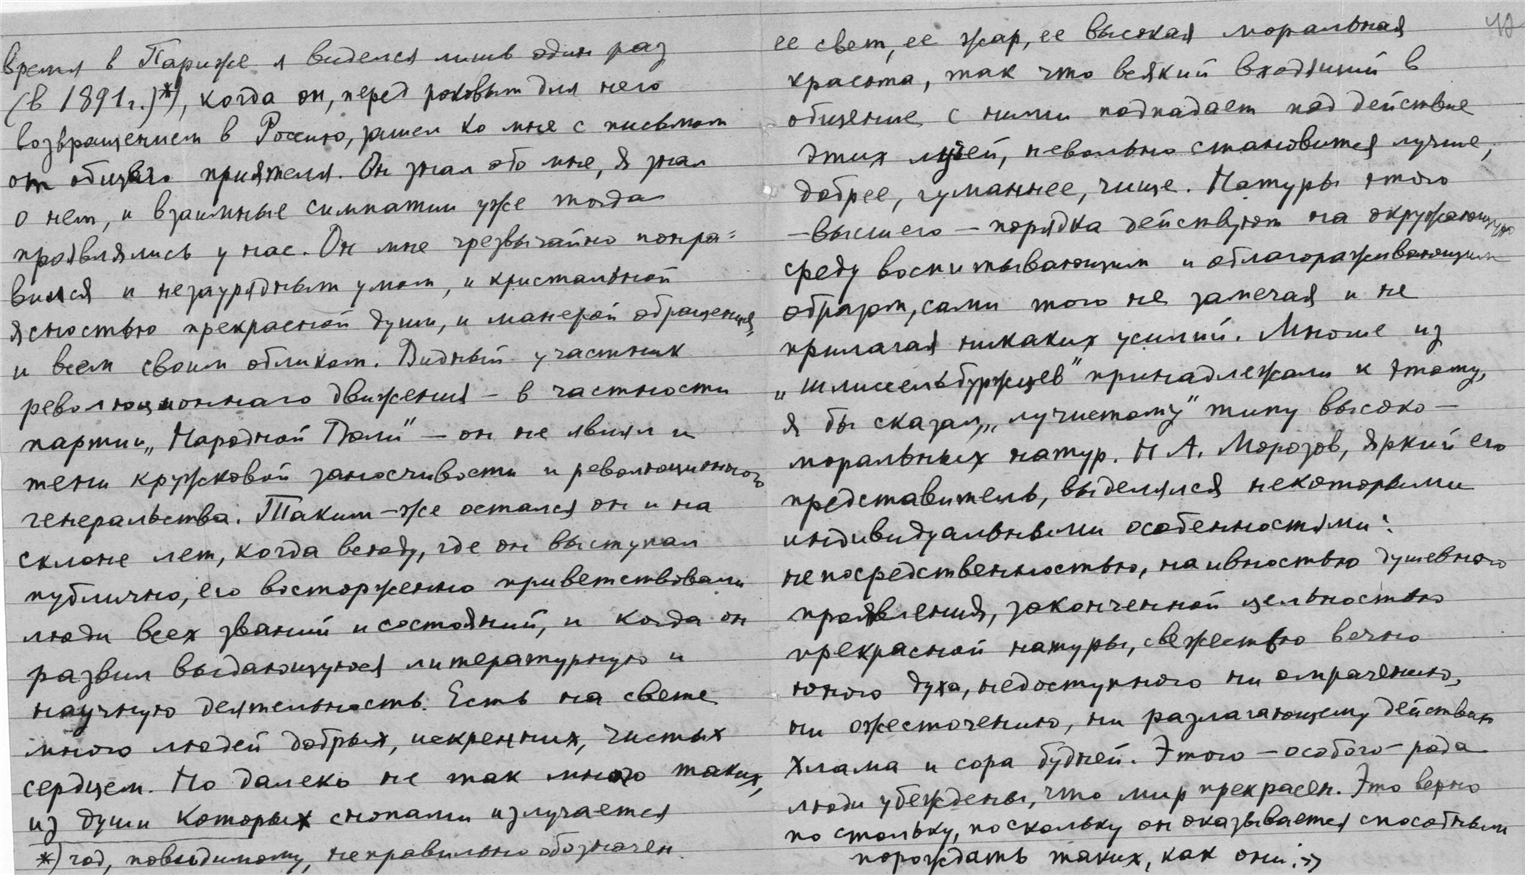 время в Париже я виделся лишь один раз
(в 1891 г.)*), когда он, перед роковым для него
возвращением в Россию, зашел ко мне с письмом
от общего приятеля. Он знал обо мне, я знал
о нем, и взаимные симпатии уже тогда
проявлялись у нас. Он мне чрезвычайно понра=
вился и незаурядным умом, и кристальной
ясностью прекрасной души, и манерой обращения,
и всем своим обликом. Видный участник
революционного движения – в частности
партии „Народной Воли" – он не являл и
тени кружковой заносчивости и революционного
генеральства. Таким-же остался он и на
склоне лет, когда всюду, где он выступал
публично, его восторженно приветствовали
люди всех званий и состояний, и когда он
развил выдающуюся литературную и
научную деятельность. Есть на свете
много людей добрых, искренних, чистых
сердцем. Но далеко не так много таких,
из души которых снопами излучается
*) год, повидимому, неправильно обозначен.
ее свет, ее жар, ее высокая моральная
красота, так что всякий входящий в
общение с ними подпадает под действие
этих лучей, невольно становится лучше,
добрее, гуманнее, чище. Натуры этого
– высшего – порядка действуют на окружающую
среду воспитывающим и облагораживающим
образом, сами того не замечая и не
прилагая никаких усилий. Многие из
„шлиссельбуржцев" принадлежали к этому,
я бы сказал, „лучистому" типу высоко–
моральных натур. Н. А. Морозов, яркий его
представитель, выделялся некоторыми
индивидуальными особенностями:
непосредственностью, наивностью душевного
проявления, законченной цельностью
прекрасной натуры, свежестью вечно
юного духа, недоступного ни омрачению,
ни ожесточению, ни разлагающему действию
хлама и сора будней. Этого – особого – рода
люди убеждены, что мир прекрасен. Это верно
постольку, поскольку он оказывается способным
порождать таких, как они.»